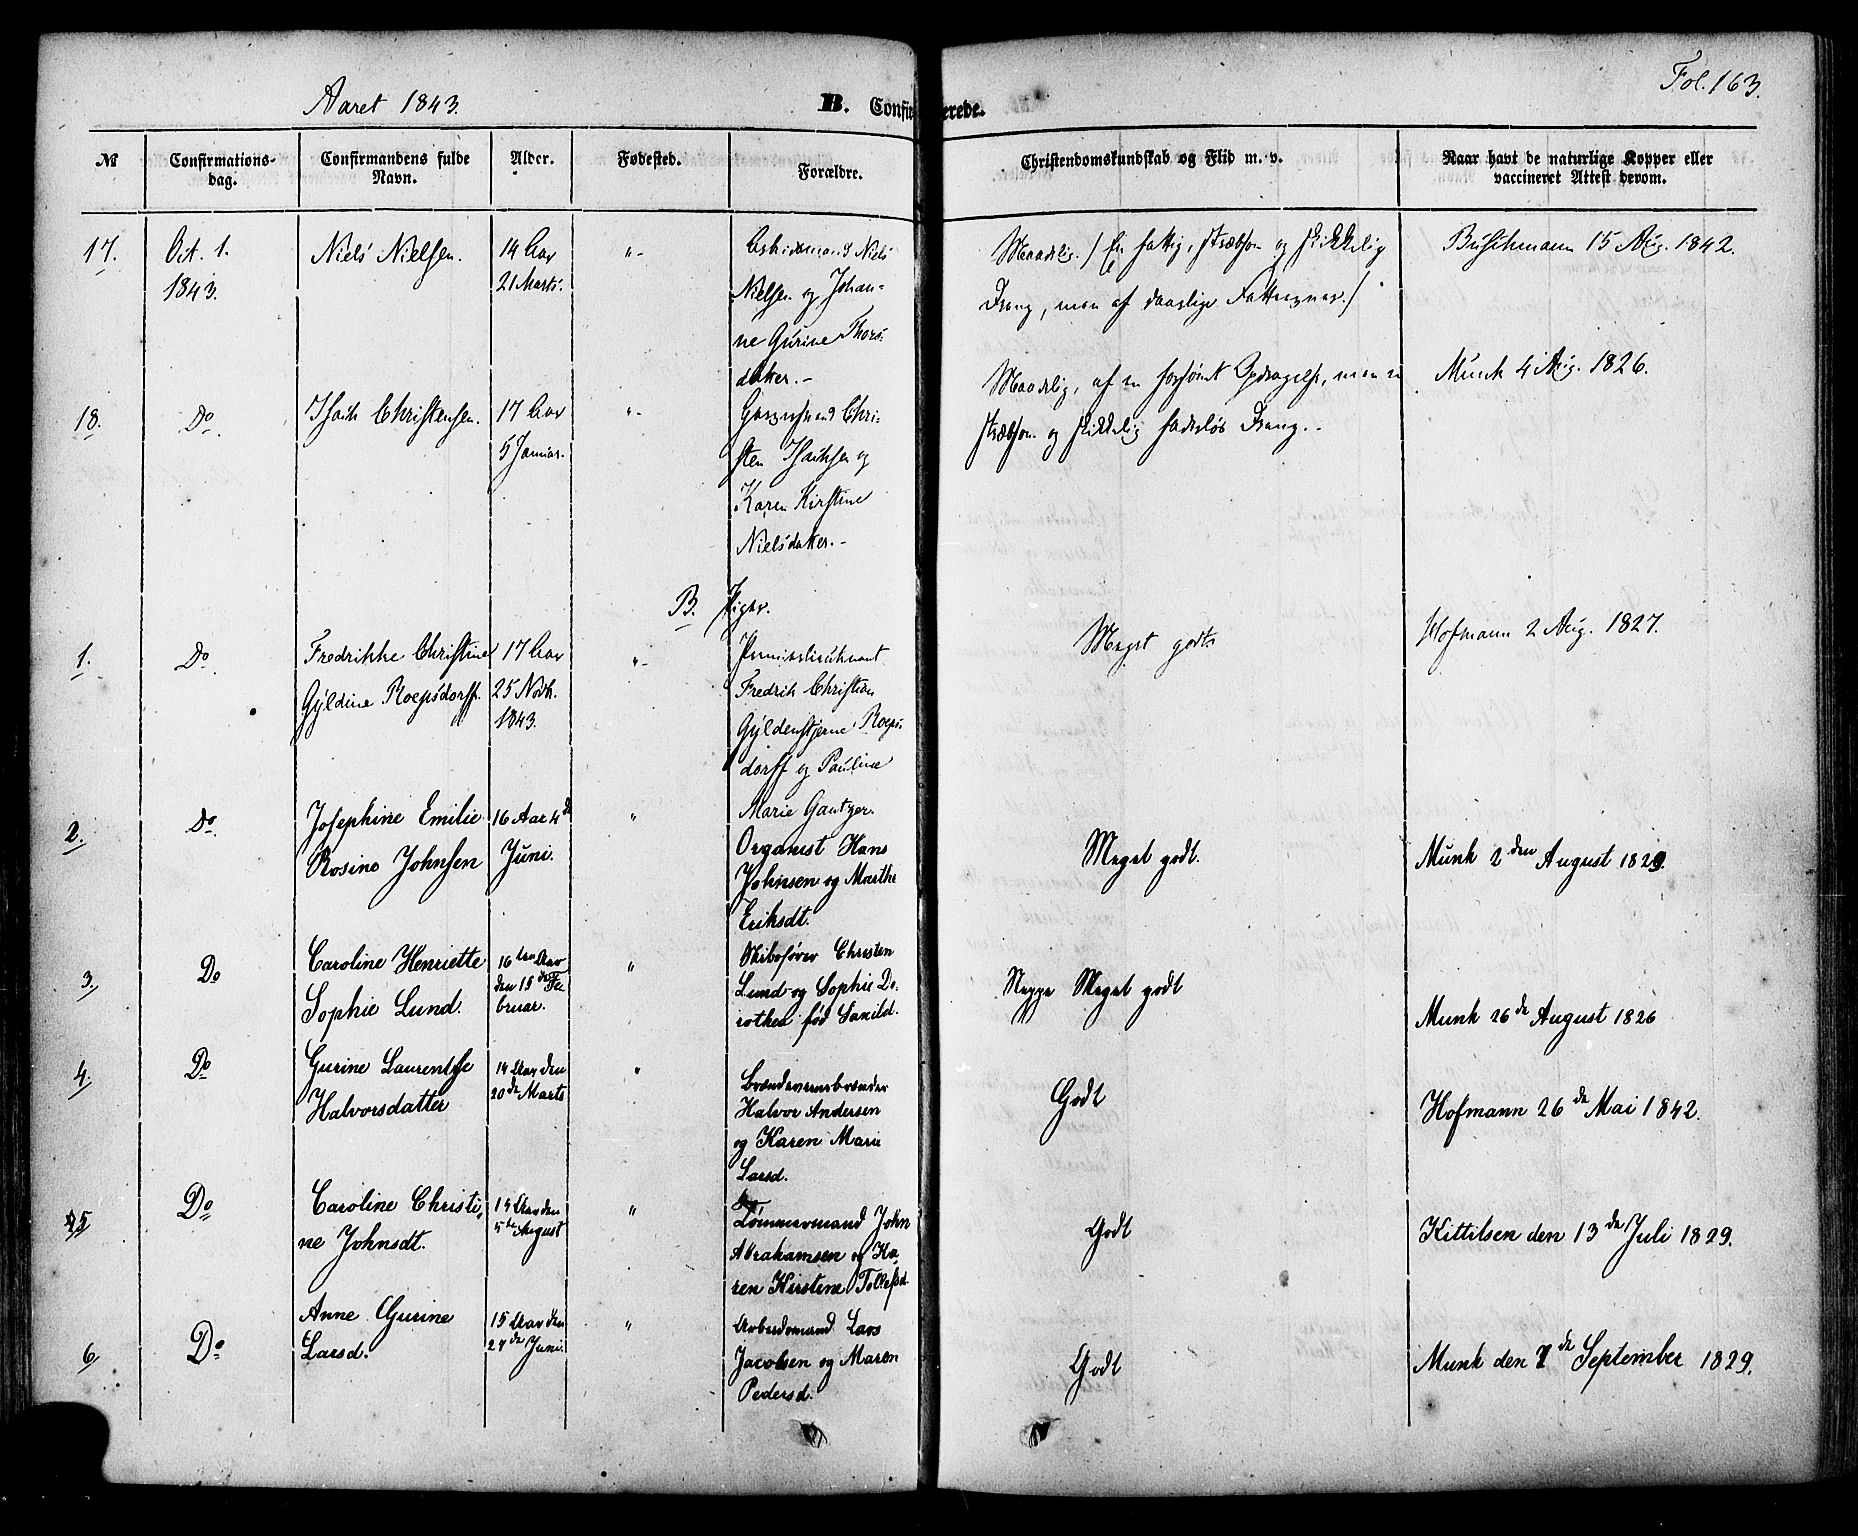 Fol. 163.
Aaret 1843.
B. Confir erede.
No
Confirmations-
dag.
Confirmandens fulde
Navn.
Alder.
Fødested.
Forældre.
Christendomskundskab og Flid m. v.
Naar havt de naturlige Kopper eller
vaccineret Attest derom.
17.
Oct. 1.
1843.
Niels Nielsen.
14 Aar
21 Marts.
"-
Arbeidsmand Niels
Nielsen og Johan-
ne Gurine Thors-
datter.-
Maadelig. / En fattig, stræbsom og skikkelig
Dreng, men af daarlige Fatteevner. /
Buschmann 15 Aug. 1842.
18.
Do.
Isach Christensen.
17 Aar
5 Januar.
"-
Christ-
sten Isachsen og
Karen Kirstine
Nielsdatter.-
Maadelig, af en forsømt Opdragelse, men en
stræbsom og skikkelig faderløs Dreng.-
Munch 4 Aug. 1826.
B. Piger.
1.
Do
Fredrikke Christine
Gyldine Roepsdorff.
17 Aar
25 Novb.
1843.
"-
Premierlieutenant
Fredrik Christian
Gyldenstjerne Roeps-
dorff og Pauline
Marie Gantzer.
Meget godt.
Hofmann 2 Aug. 1827.
2.
Do
Josephine Emilie
Rosine Johnsen
16 Aar 4de
Juni.
"
Organist Hans
Johnsen og Marthe
Eriksdt.
Meget godt.
Munk 2den August 1829.
3.
Do
Caroline Henriette
Sophie Lund.
16 Aar
den 15de Fe-
bruar.
"
Skibsfører Christen
Lund og Sophie Do-
rothea fød Sanild.
Neppe Meget godt
Munk 26de August 1826
4.
Do
Gurine Laurentse
Halvorsdatter
14 Aar den
20de Marts
"
Brændeviinsbrænder
Halvor Andersen
og Karen Marie
Larsd.
Godt
Hofmann 26de Mai 1842.
5
Do
Caroline Christi-
ne Johnsdt.
14 Aar den
5te August
"
Tømmermand John
Abrahamsen og Ka
ren Kirstine Tollefsd.
Godt
Kittilsen den 13de Juli 1829.
6
Do
Anne Gurine
Larsd.
15 Aar den
27de Juni.
"
Arbeidsmand Lars
Jacobsen og Maren
Pedersd.
Godt
Munk den 7de September 1829.